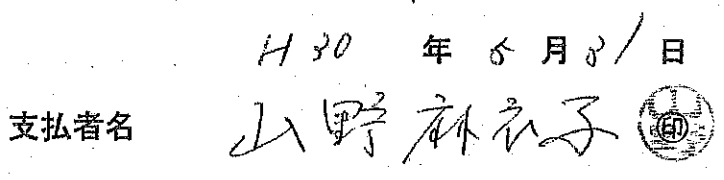 H30 年 5 月 31 日
支払者名 山野麻衣子 印